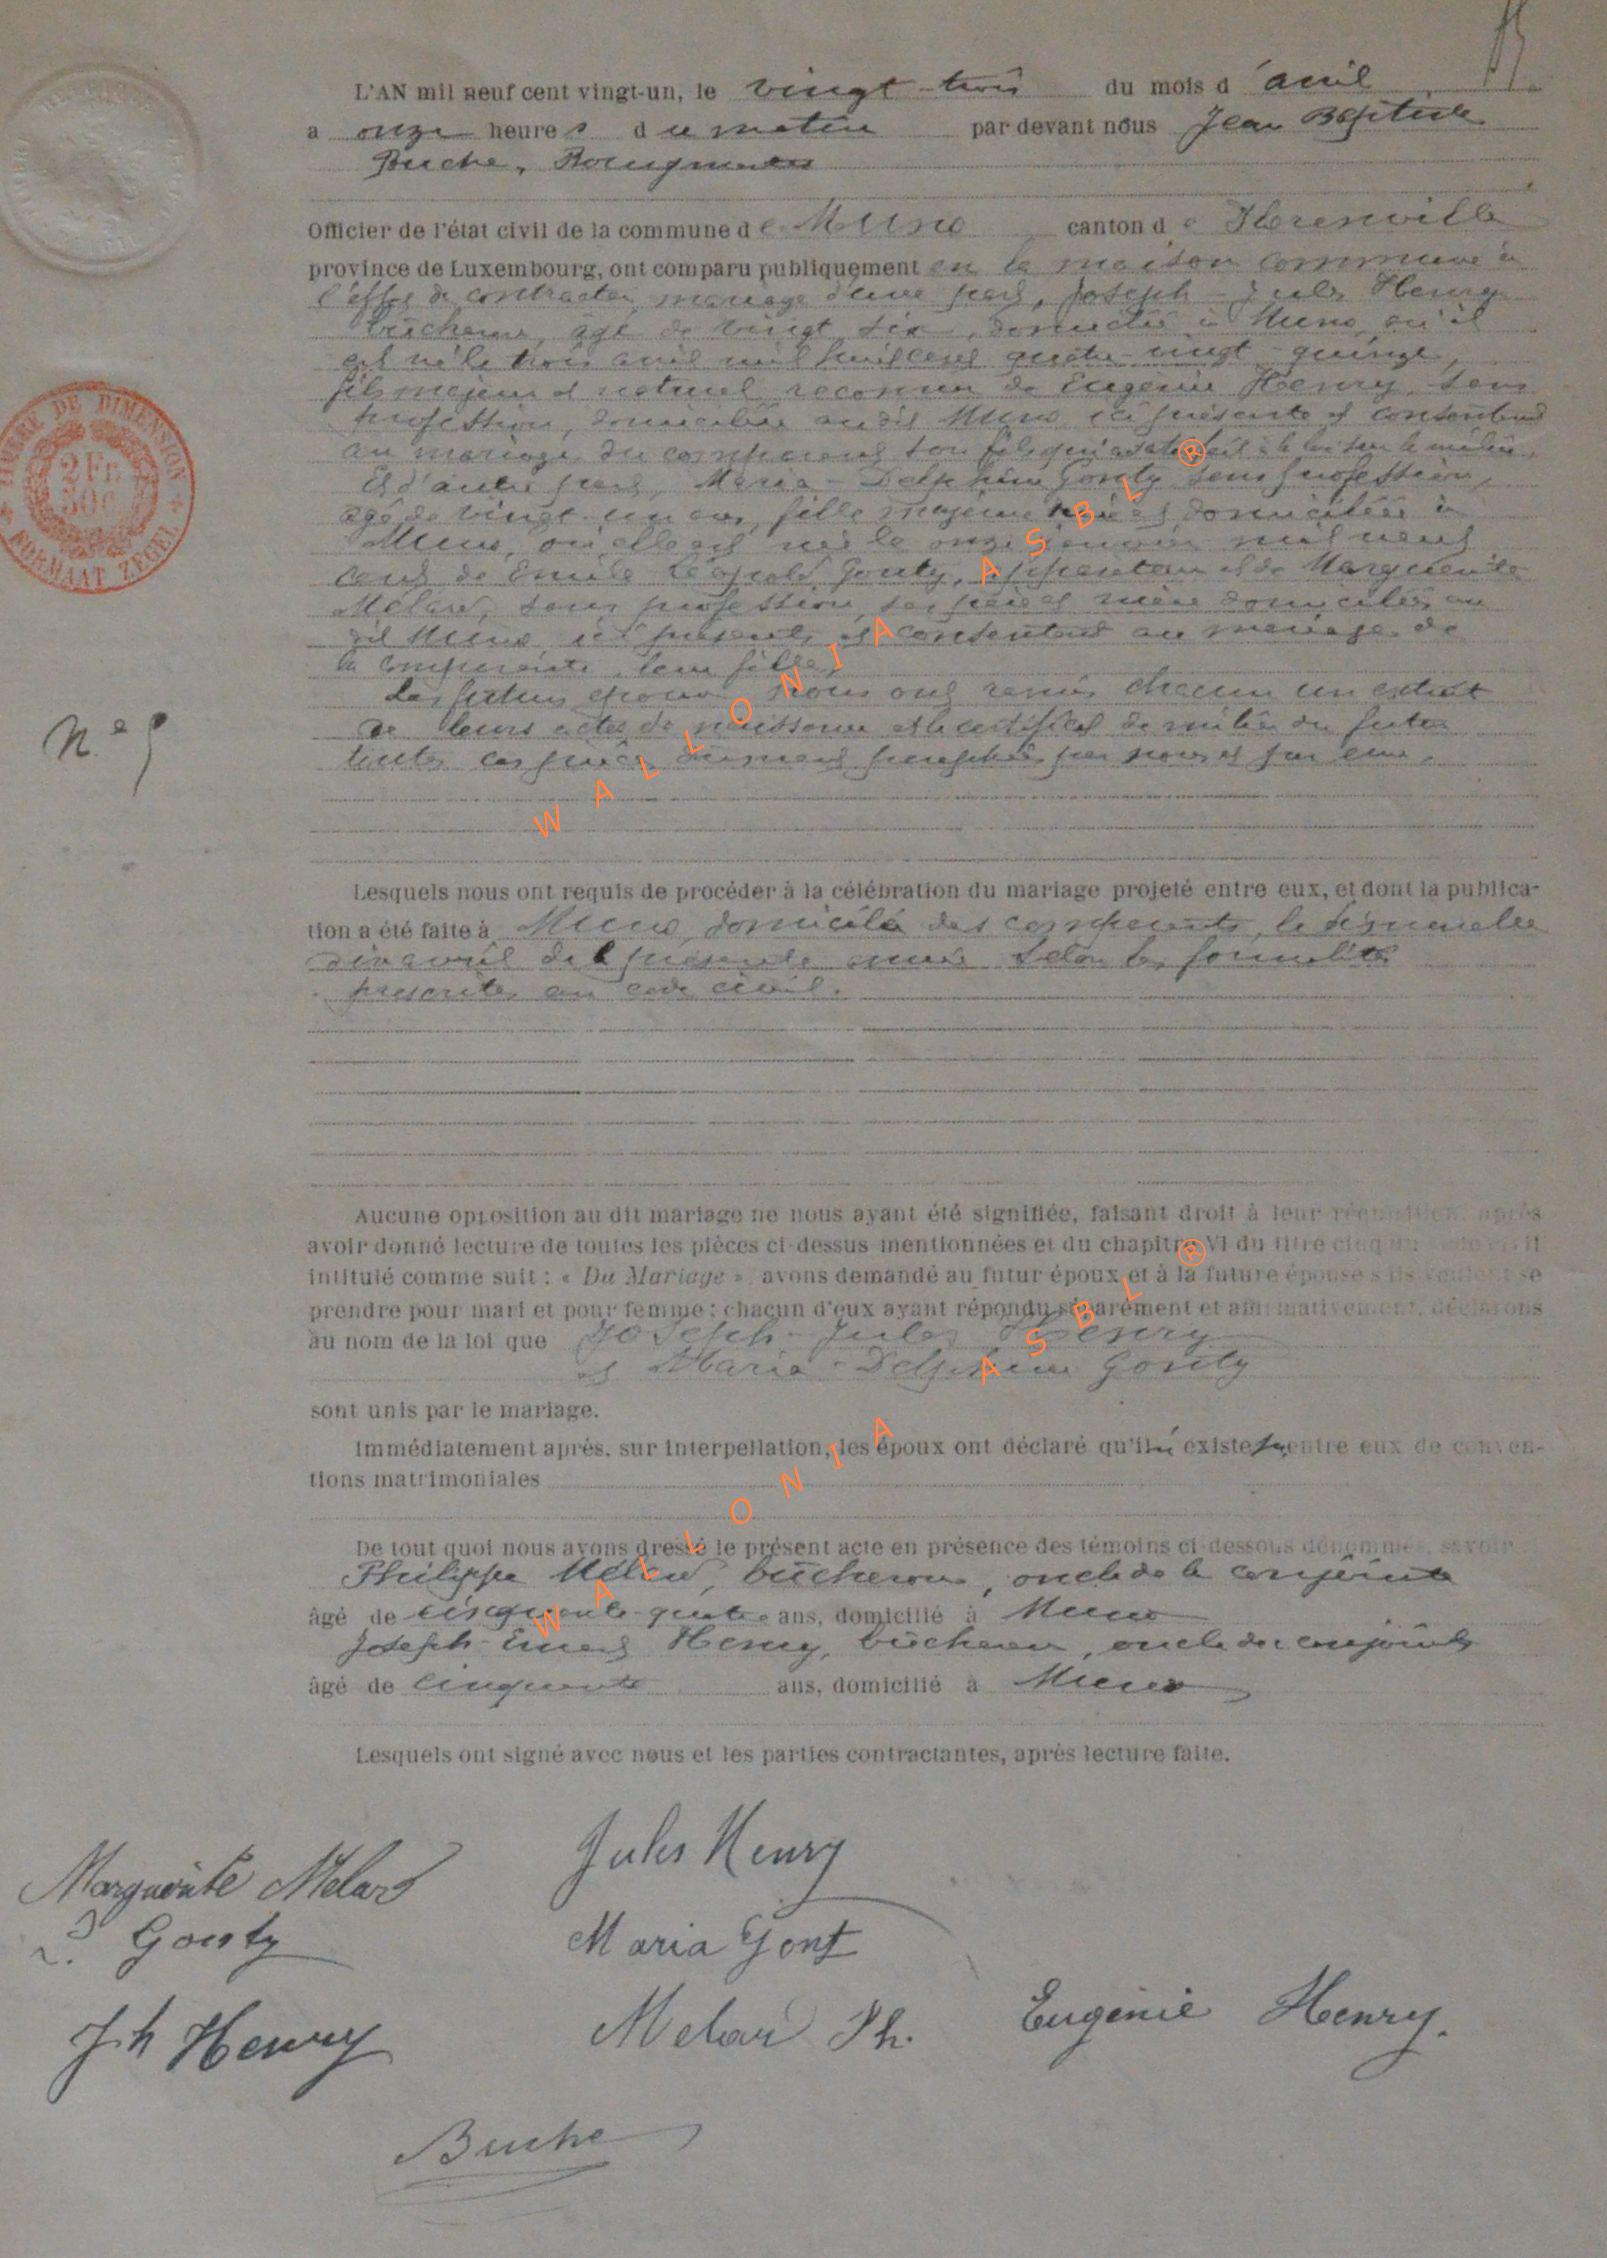 L'AN mil neuf cent vingt-un, le vingt trois du mois d'avril
a onze heures du matin par devant nous Jean Baptiste
Buche, Bourgmestre
Officier de l'état civil de la commune de Muno canton de Florenville
province de Luxembourg, ont comparu publiquement en la maison commune à
l'effet de contracter mariage d'une part, Joseph-Jules Henry
bûcheron, âgé de vingt six, domicilié à Muno, où il
est né le trois avril mil huit cent quatre-vingt-quinze,
fils majeur et naturel reconnu de Eugénie Henry, sans
profession, domiciliée au dit Muno, ici présente et consentant
au mariage du comparant son fils qui a satisfait à la loi sur la milice,
Et d'autre part, Maria-Delphine Gouty sans profession,
âgé de vingt-un ans, fille majeure née et domiciliée à
Muno, où elle est née le onze janvier mil neuf
cent de Emile Léopold Gouty, et de Marguerite
Mélard, sans profession, ses père et mère domiciliés au
dit Muno, ici présents et consentant au mariage de
la comparante, leur fille,
Les futurs époux nous ont remis chacun un extrait
de leurs actes de naissance et le certificat de milice du futur
toutes ces pièces dûment paraphées par nous et par eux.
N° 9
Lesquels nous ont requis de procéder à la célébration du mariage projeté entre eux, et dont la publica-
tion a été faite à Muno, domicile des comparants, le dimanche
dix avril de l présente année selon les formalités
prescrites au code civil.
Aucune opposition au dit mariage ne nous ayant été signifiée, faisant droit à leur réquisition, après
avoir donné lecture de toutes les pièces ci-dessus mentionnées et du chapitre VI du titre cinq du code civil
intitulé comme suit : « Du Mariage », avons demandé au futur époux et à la future épouse s'ils veulent se
prendre pour mari et pour femme ; chacun d'eux ayant répondu séparément et affirmativement, déclarons
au nom de la loi que Joseph-Jules Henry
et Maria-Delphine Gouty
sont unis par le mariage.
Immédiatement après, sur interpellation, les époux ont déclaré qu'il n'existe pas entre eux de conven-
tions matrimoniales
De tout quoi nous avons dressé le présent acte en présence des témoins ci-dessous dénommés, savoir
Philippe Mélard, bûcheron, oncle de la conjointe
âgé de cinquante-quatre ans, domicilié à Muno
Joseph-Ernest Henry, bûcheron, oncle du conjoint
âgé de cinquante ans, domicilié à Muno
Lesquels ont signé avec nous et les parties contractantes, après lecture faite.
Jules Henry
Marguerite Melard
Gouty
Maria Gout
Jh Henry
Melard Ph.
Eugénie Henry.
Buche
TIMBRE DE DIMENSION
2 FR
50C
FORMAAT ZEGEL
WALLONIA ASBL ®
WALLONIA ASBL ®